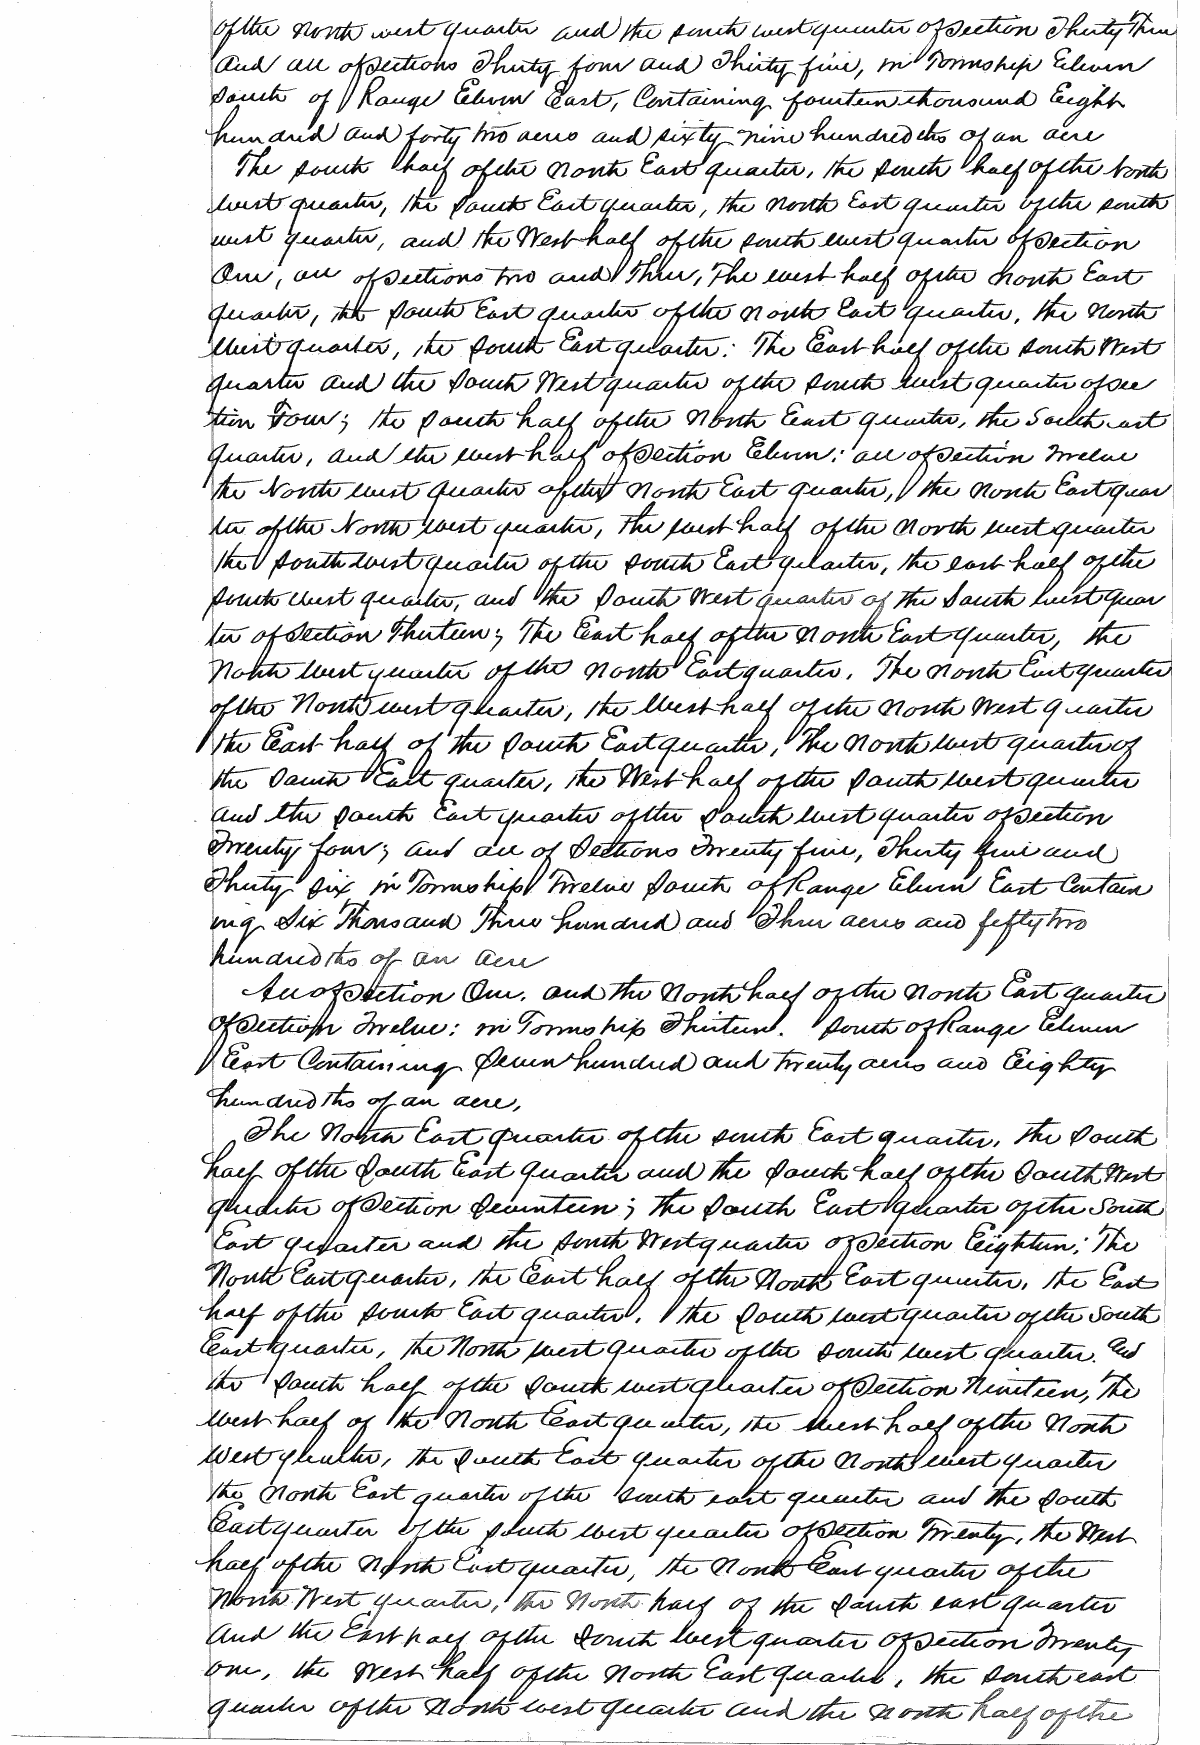 of the North west quarter and the south west quarter of Section Thirty Three
And all of Sections Thirty four and Thirty five, in Township Eleven
South of Range Eleven East, Containing fourteen thousand Eight
hundred and forty two acres and sixty nine hundredths of an acre
The south half of the North East quarter, the south half of the North
west quarter, the South East quarter, the North East quarter of the south
west quarter, and the West half of the south west quarter of Section
One, all of Sections two and Three, The west half of the North East
quarter, the South East quarter of the North East quarter, the North
West quarter, the South East quarter: The East half of the South West
quarter and the South West quarter of the south west quarter of Sec
tion Four; the South half of the North East quarter, the South east
quarter, and the west half of Section Eleven: all of Section Twelve
the North west quarter of the North East quarter, the North East quar
ter of the North west quarter, The west half of the North west quarter
the South west quarter of the south East quarter, the east half of the
south west quarter, and the South West quarter of the South west quar
ter of Section Thirteen; The East half of the North East quarter, the
North west quarter of the North East quarter. The North East quarter
of the North west quarter, the West half of the North West quarter
the East half of the South East quarter, The North west quarter of
the South East quarter, the West half of the South west quarter
and the South East quarter of the South west quarter of Section
Twenty four; and all of Sections Twenty five, Thirty five and
Thirty six in Township Twelve South of Range Eleven East Contain
ing Six Thousand Three hundred and Three acres and fifty two
hundredths of an acre
All of Section One. and the North half of the North East quarter
of Section Twelve: in Township Thirteen. South of Range Eleven
East Containing Seven hundred and twenty acres and Eighty
hundredths of an acre,
The North East quarter of the south East quarter, the South
half of the South East quarter and the South half of the South West
quarter of Section Seventeen; the South East quarter of the South
East quarter and the South West quarter of Section Eighteen; The
North East quarter, the East half of the North East quarter, the East
half of the south East quarter, the South west quarter of the South
East quarter, the North west quarter of the south west quarter. and
the South half of the South west quarter of Section Nineteen, The
west half of the North East quarter, the west half of the North
West quarter, the South East quarter of the North west quarter
the North East quarter of the south east quarter and the South
East quarter of the south west quarter of Section Twenty, the West
half of the North East quarter, the North East quarter of the
North West quarter, the North half of the South east quarter
And the East half of the South West quarter of Section Twenty
one, the West half of the North East quarter, the South east
quarter of the North west quarter and the North half of the